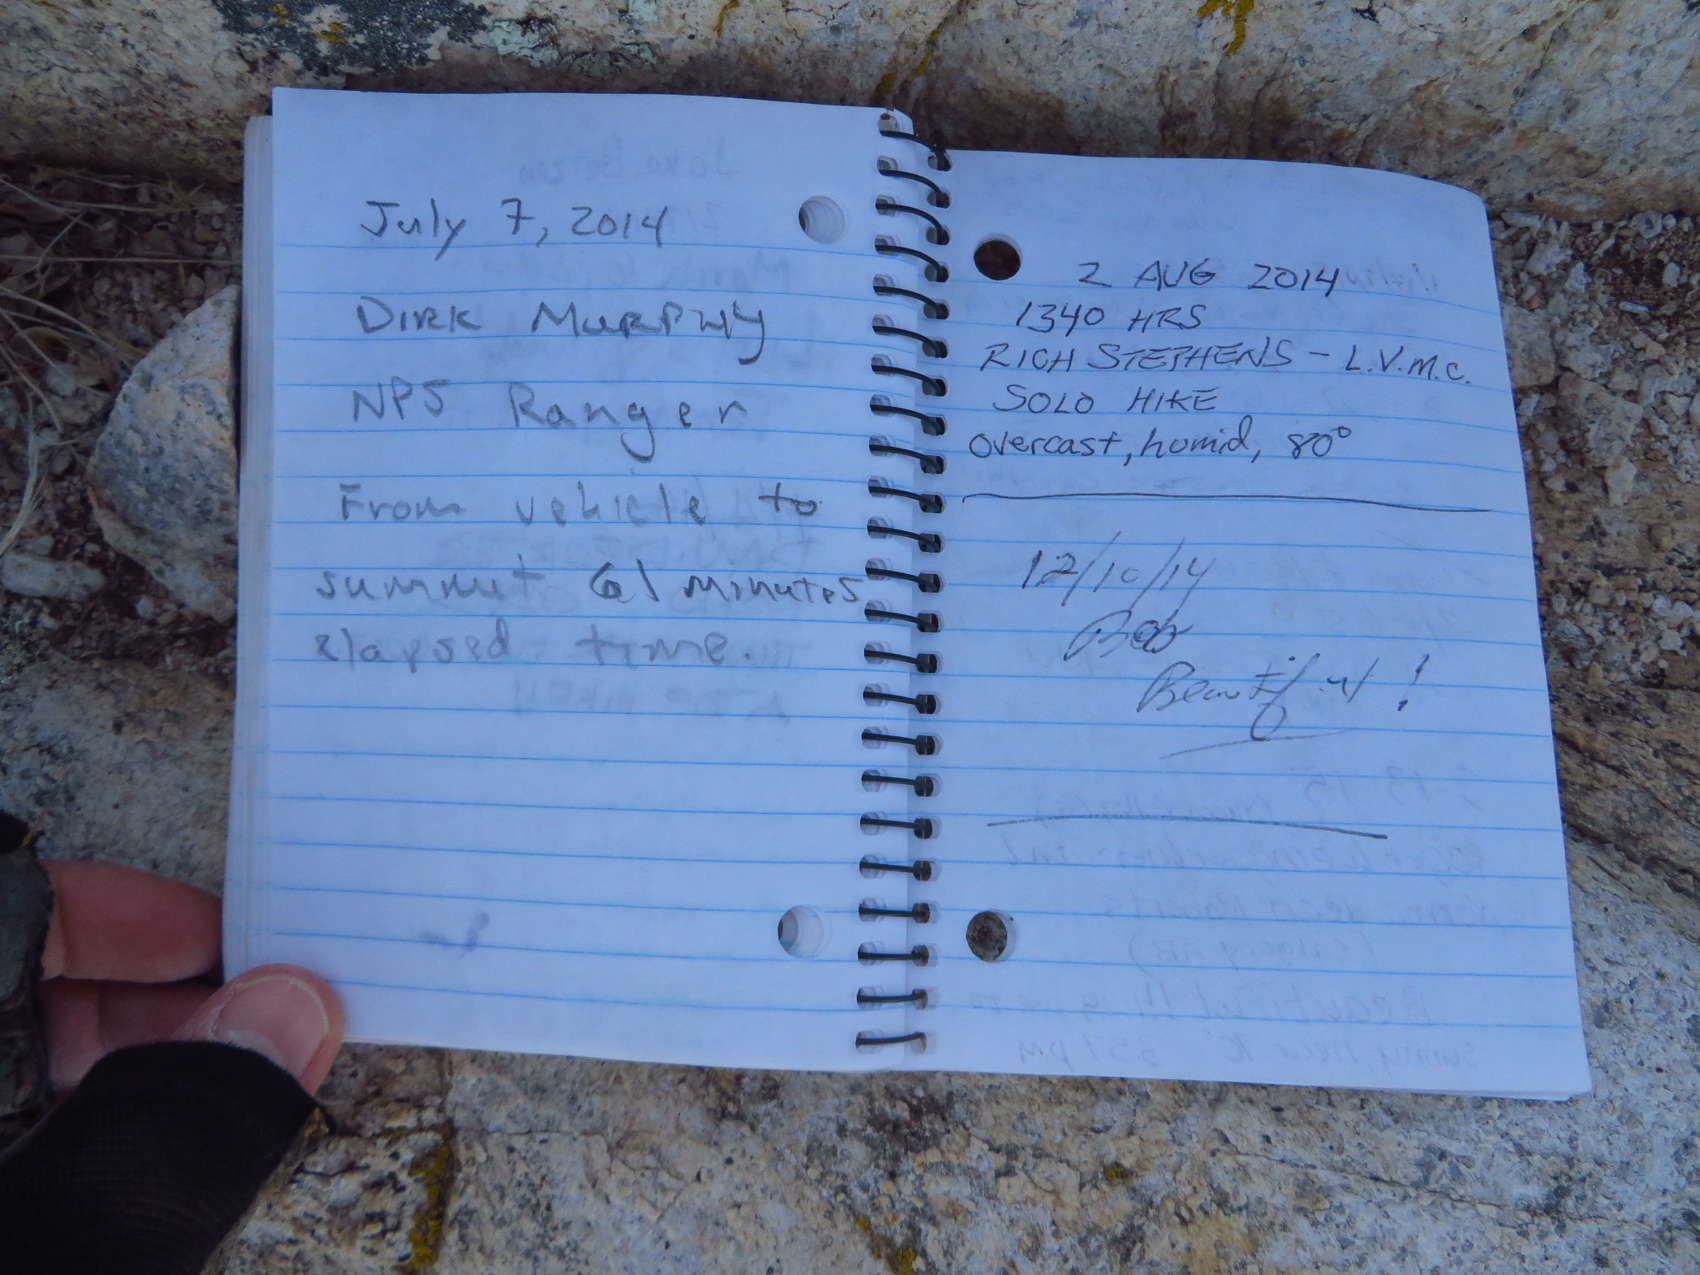 July 7, 2014
DIRK MURPHY
NPS Ranger
From vehicle to
summit 61 minutes
elapsed time.
2 AUG 2014
1340 HRS
RICH STEPHENS - L.V.M.C.
SOLO HIKE
overcast, humid, 80°
12/10/14
Bob
Beautiful !